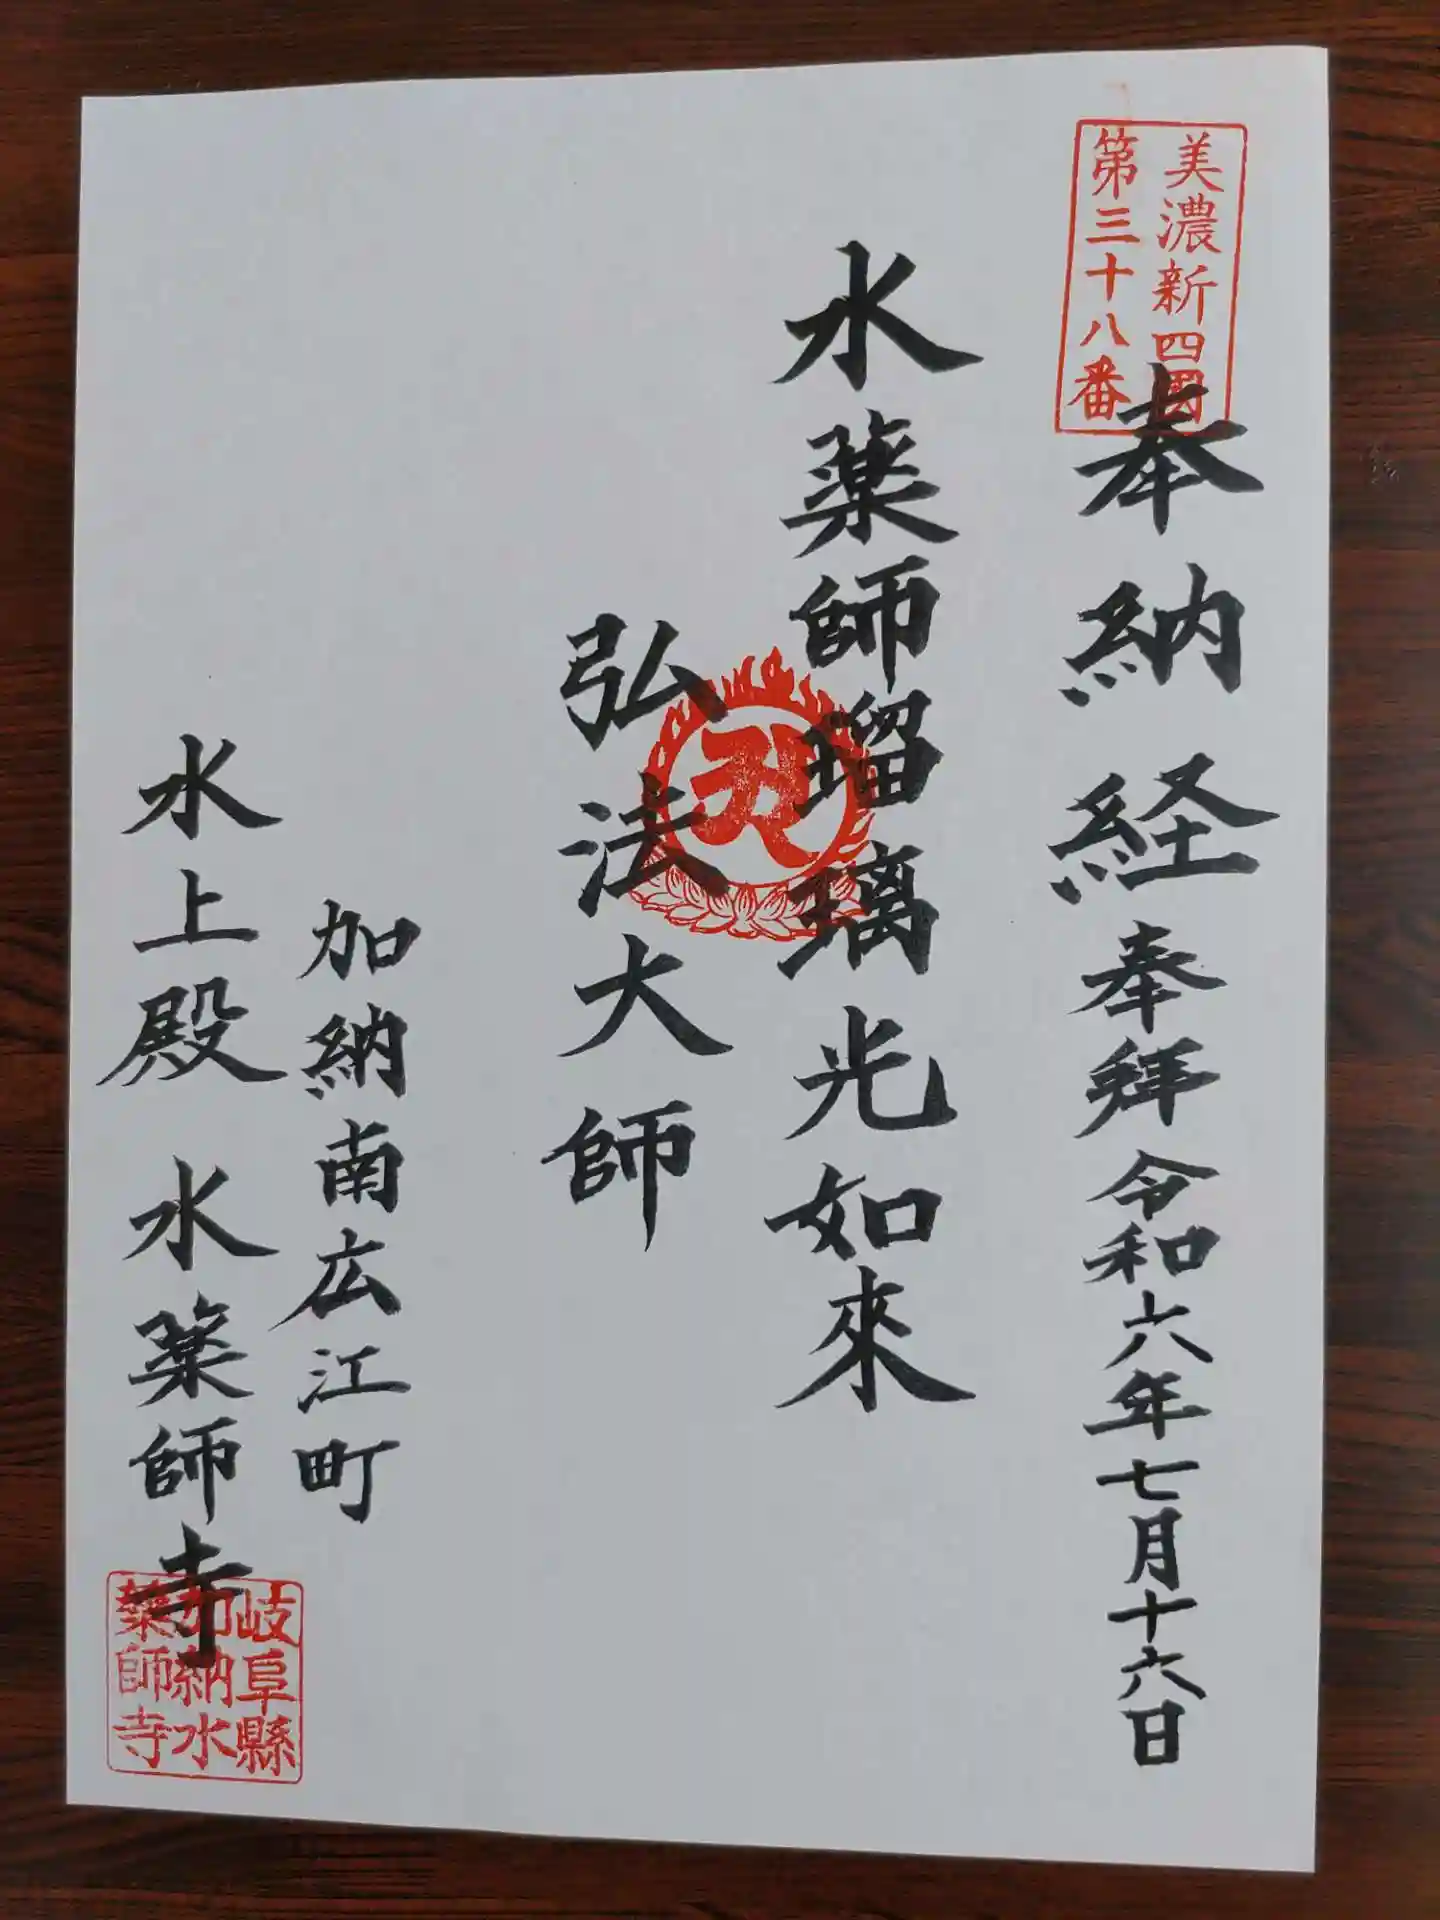 美濃新四國
第三十八番
奉納経奉拜令和六年七月十六日
水薬師瑠璃光如來
弘法大師
加納南広江町
水上殿 水薬師寺
岐阜縣
加納水
薬師寺